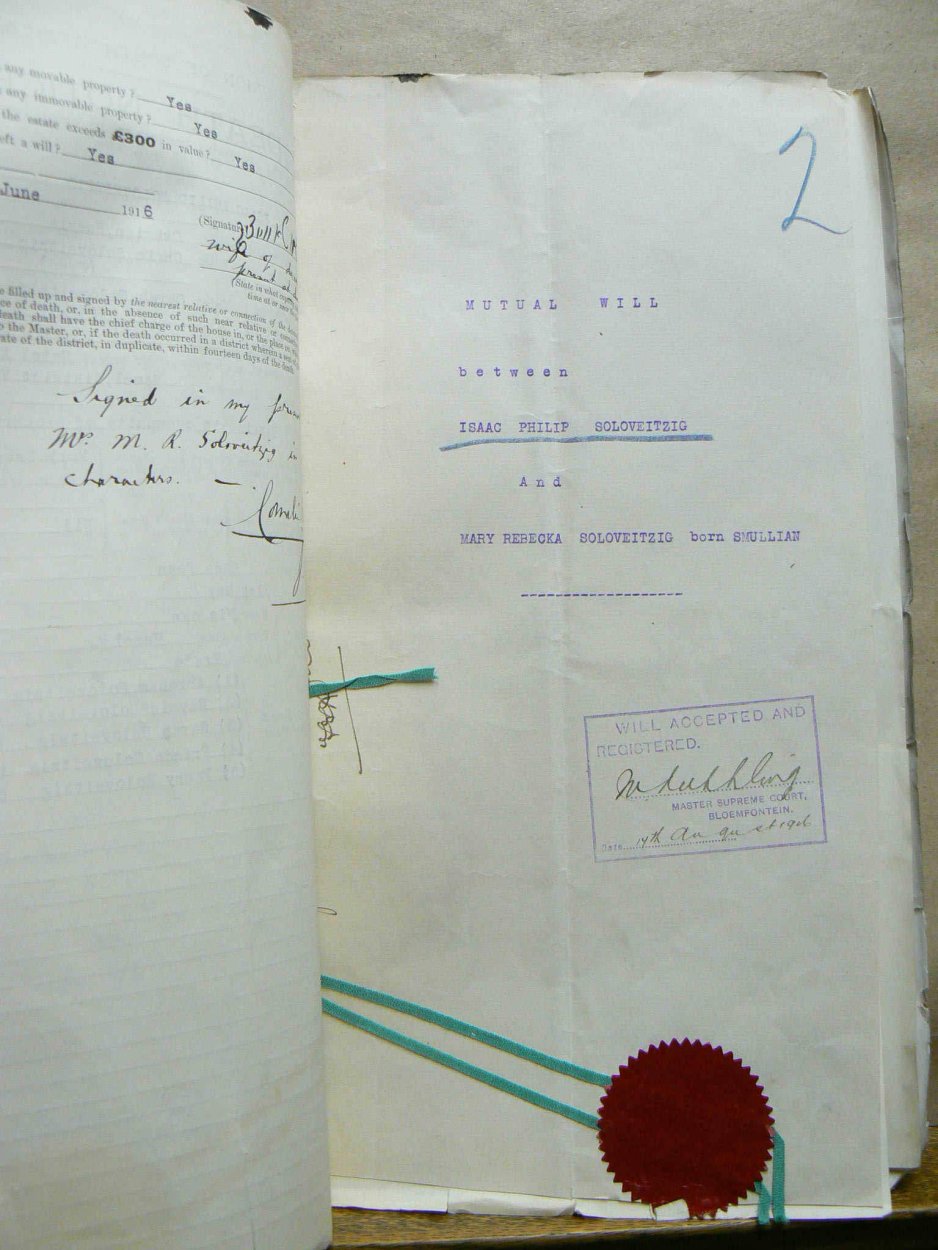 any movable property? Yes
any immovable property? Yes
the estate exceeds £300 in value? Yes
eft a will? Yes
June 1916
(Signatu
wife of
(State in what
time at or
e filled up and signed by the nearest relative or connection of the
ce of death, or, in the absence of such near relative or
death shall have the chief charge of the house in, or the place on
o the Master, or, if the death occurred in a district wherein
ate of the district, in duplicate, within fourteen days of the death.
Signed in my
Mrs M. R. Soloveitzig in
characters. —
2
MUTUAL WILL
between
ISAAC PHILIP SOLOVEITZIG
And
MARY REBECKA SOLOVEITZIG born SMULLIAN
WILL ACCEPTED AND
REGISTERED.
MASTER SUPREME COURT,
BLOEMFONTEIN.
Date 14th August 1916